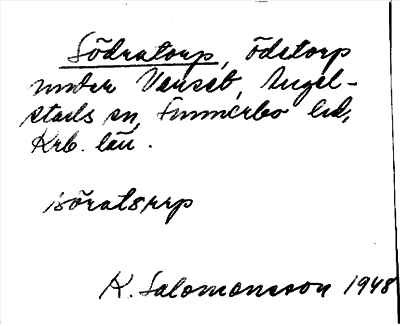 Södratorp, ödetorp
under Vensåt, Angel-
stads sn, Sunnerbo hd,
Krb. län.
K. Salomonsson 1948